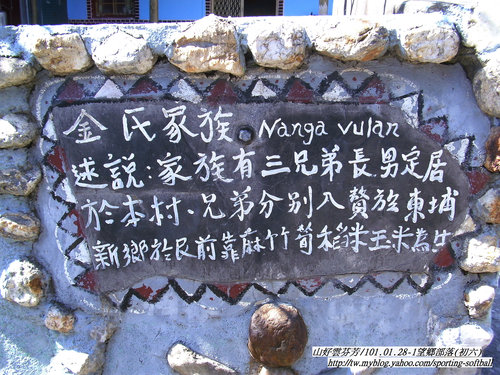 金氏家族 Nanga vulan
述説:家族有三兄弟長男定居
於本村、兄弟分別入贅於東埔
新鄉於民前靠麻竹筍稻米玉米為生
山好雲芬芳/101.01.28-1望鄉部落(初六)
http://tw.myblog.yahoo.com/sporting-softball